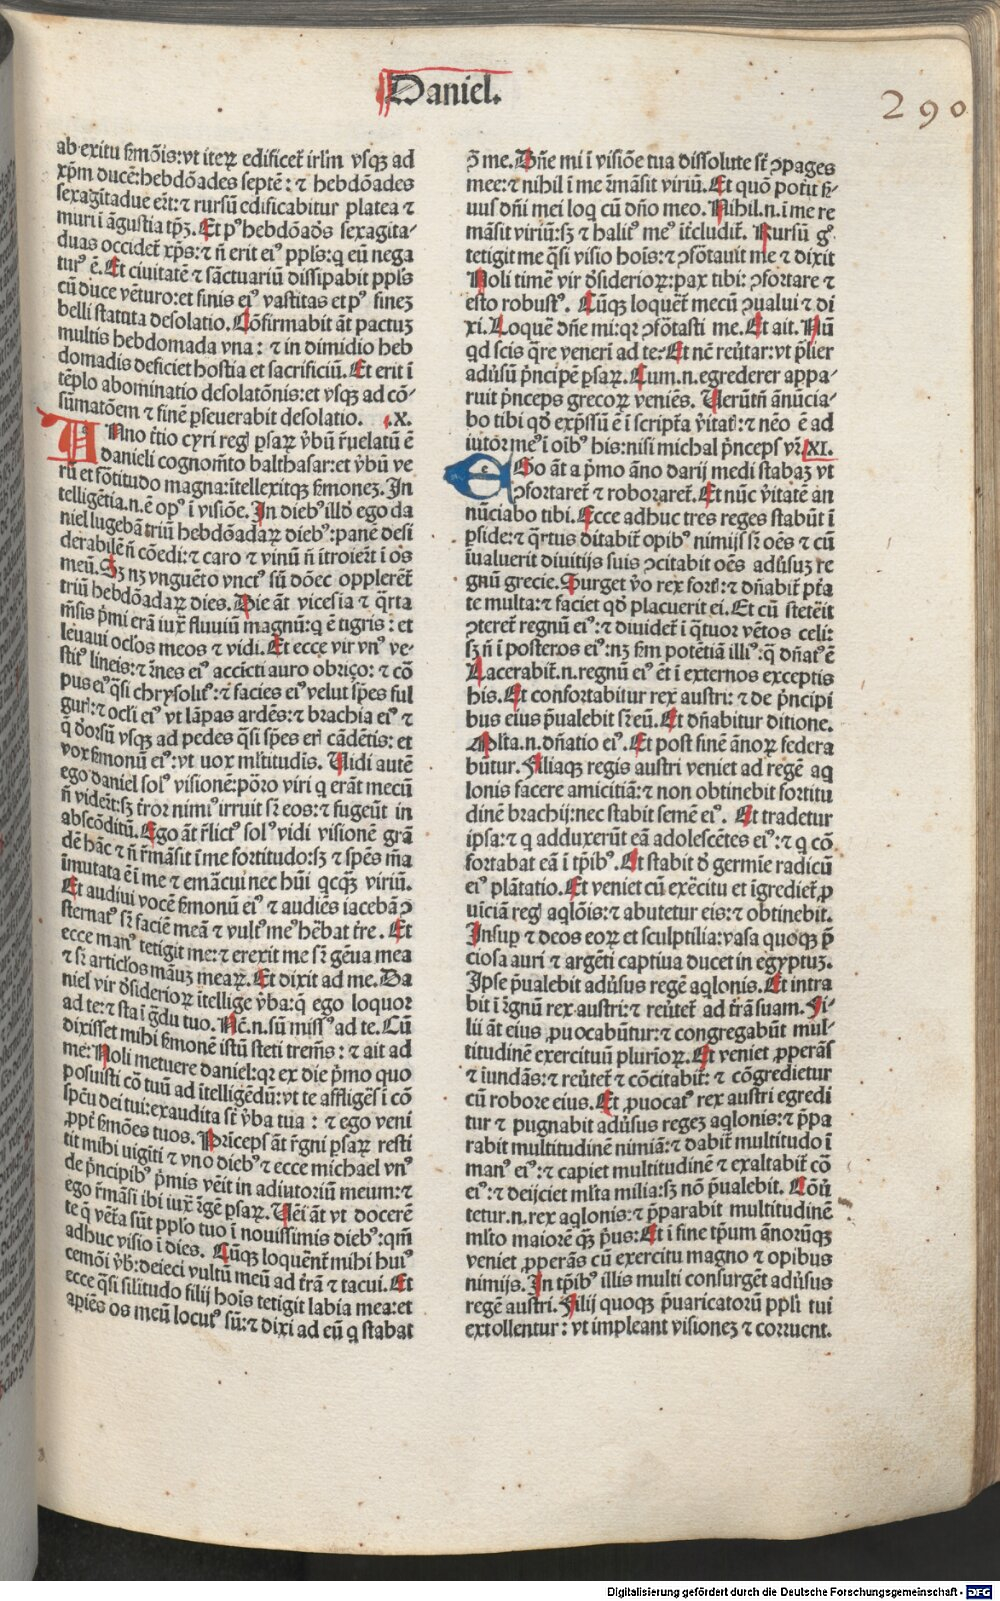 Daniel.
290
ab exitu ẜmōis: vt iteꝝ edificet᷑ irl̄m vsqꝫ ad
xp̄m ducē: hebdōades septē: ⁊ hebdōades
sexagītadue er̄t: ⁊ rursū edificabitur platea ⁊
muri ī āgustia tp̄ꝫ. Et pꝰ hebdōadas sexagīta-
duas occidet᷑ xp̄s: ⁊ n̄ erit eiꝰ ppl̄s: q̄ eū nega
turꝰ ē. Et ciuitatē ⁊ sāctuariū dissipabit ppl̄s
cū duce vēturo: et finis eiꝰ vastitas et pꝰ fineꝫ
belli statuta desolatio. Cōfirmabit āt pactuꝫ
multis hebdomada vna: ⁊ in dimidio heb
domadis deficiet hostia et sacrificiū. Et erit ī
tēplo abominatio desolatōnis: et vsqꝫ ad cō-
sūmatōem ⁊ finē p̱seuerabit desolatio. .X.
Anno t̄tio cyri reḡ p̱saꝝ v̄bū r̄uelatū ē
danieli cognom̄to balthasar: et v̄bū ve
rū et fōtitudo magna: ītellexitqꝫ ẜmoneꝫ. In
telligētia.n.ē opꝰ ī visiōe. In diebꝰ ill̄ ego da
niel lugebā triū hebdōadaꝝ diebꝰ: panē desi
derabilē n̄ cōedi: ⁊ caro ⁊ vinū n̄ ītroier̄t ī os
meū. Sꝫ nꝫ vnguēto vnctꝰ sū dōec opplerēt᷑
triū hebdōadaꝝ dies. Die āt vicesīa ⁊ q̄rta
m̄sis p̄mi erā iux̄ fluuiū magnū: q̄ ē tigris: et
leuaui ocl̄os meos ⁊ vidi. Et ecce vir vnꝰ ve-
stitꝰ lineis: ⁊ r̄nes eiꝰ accīcti auro obriço: ⁊ cō
pus eiꝰ q̄si chrysolitꝰ: ⁊ facies eiꝰ velut sp̄es ful
gur̄: ⁊ ocl̄i eiꝰ vt lāpas ardēs: ⁊ brachia eiꝰ ⁊
q̄ d̄orsū vsqꝫ ad pedes q̄si sp̄es er̄ cādētis: et
vox ẜmonū eiꝰ: vt uox ml̄titudis. Uidi autē
ego daniel solꝰ visionē: poro viri q̄ erāt mecū
n̄ vider̄t: sꝫ t̄ror nimiꝰ irruit sꝝ eos: ⁊ fugeūt in
abscōditū. Ego āt r̄lictꝰ solꝰ vidi visionē grā
dē hāc ⁊ n̄ r̄māsit ī me fortitudo: sꝫ ⁊ sp̄es m̄a
īmutata ē ī me ⁊ emācui nec hūi qcqꝫ̄ viriū.
Et audiui vocē ẜmonū eiꝰ ⁊ audiēs iacebā ꝯ
sternatꝰ sꝝ faciē meā ⁊ vultꝰ meꝰ hēbat t̄re. Et
ecce manꝰ tetigit me: ⁊ erexit me sꝝ gēua mea
⁊ sꝝ articl̄os māuꝫ meaꝝ. Et dixit ad me. Da
niel vir d̄sideriorꝝ ītellige v̄ba: q̄ ego loquor
ad te: ⁊ sta ī ḡdu tuo. Nē.n.sū missꝰ ad te. Cū
dixisset mihi ẜmonē istū steti trem̄s: ⁊ ait ad
me: Noli metuere daniel: qꝛ ex die p̄mo quo
posuisti cō tuū ad ītelligēdū: vt te affliger̄s ī cō
sp̄cu dei tui: exaudita st̄ v̄ba tua: ⁊ ego veni
ꝓpt̄ ẜmōes tuos. Prīceps āt r̄gni p̱saꝝ resti
tit mihi uigīti ⁊ vno diebꝰ ⁊ ecce michael vnꝰ
de p̄ncipibꝰ p̄mis vēit in adiutoriū meum: ⁊
ego r̄māsi ibi iux̄ r̄gē p̱saꝝ. Uēi āt vt docerē
te q̄ vēt̄a sūt ppl̄o tuo ī nouissimis diebꝰ: qm̄
adhuc visio ī dies. Cūqꝫ loquēr̄t mihi huiꝰ
cemōi v̄b: deieci vultū meū ad t̄rā ⁊ tacui. Et
ecce q̄si sil̄itudo filij hoīs tetigit labia mea: et
apiēs os meū locutꝰ sū: ⁊ dixi ad eū q̄ stabat
ꝯ̄ me. Dn̄e mi ī visiōe tua dissolute st̄ ꝯpages
mee: ⁊ nihil ī me r̄māsit viriū. Et quō potīt ẜ-
uus dn̄i mei loq̄ cū dn̄o meo. Nihil.n.ī me re
māsit viriū: sꝫ ⁊ halitꝰ meꝰ īt̄cludit᷑. Rursū gͦ
tetigit me q̄si visio hoīs: ⁊ ꝯfōtauit me ⁊ dixit
Noli timē vir d̄siderioꝝ: pax tibi: ꝯfortare ⁊
esto robustꝰ. Cūqꝫ loquet᷑ mecū ꝯualui ⁊ di
xi. Loquē dn̄e mi: qꝛ ꝯfōtasti me. Et ait. Nū
qd scis q̄re veneri ad te: Et nc̄ reūtar: vt p̄lier
adūsū p̄ncipē p̱saꝝ. Cum.n.egrederer appa-
ruit p̄nceps grecoꝝ veniēs. Uerūtn̄ anūcia-
bo tibi qd̄ exp̄ssū ē ī scriptā v̄itat̄: ⁊ nēo ē ad
iutor meꝰ ī oībꝰ his: nisi michal p̄nceps vr̄ XI.
Ego āt a p̄mo āno darij medi stabaꝫ vt
ꝯfortaret᷑ ⁊ roboraret᷑. Et nūc v̄itatē an
nūciabo tibi. Ecce adhuc tres reges stabūt ī
p̱side: ⁊ q̄rtus ditabit᷑ opibꝰ nimijs sꝝ oēs ⁊ cū
īualuerit diuitijs suis ꝯcitabit oēs adūsuꝫ re
gnū grecie. Surget v̄o rex fort̄: ⁊ dn̄abit᷑ pt̄ā
te multa: ⁊ faciet qd̄ placuerit ei. Et cū steteīt
ꝯteret᷑ regnū eiꝰ: ⁊ diuidet᷑ ī q̄tuor vētos celi:
sꝫ n̄ ī posteros eiꝰ: nꝫ ẜm potētiā illiꝰ: q̄ dn̄atꝰ ē
Lacerabit᷑.n.regnū eiꝰ ēt ī externos exceptis
his. Et confortabitur rex austri: ⁊ de p̄ncipi
bus eius p̄ualebit sꝝ eū. Et dn̄abitur ditione.
Ml̄ta.n.dn̄atio eiꝰ. Et post finē ānoꝝ federa
būtur. Filiaqꝫ regis austri veniet ad regē aq̄
lonis facere amicitiā: ⁊ non obtinebit fortitu
dinē brachij: nec stabit semē eiꝰ. Et tradetur
ipsa: ⁊ q̄ adduxerūt eā adolescētes eiꝰ: ⁊ q̄ cō
fortabat eā ī tp̄ibꝰ. Et stabit d̄ germīe radicū
eiꝰ plātatio. Et veniet cū exēcitu et īgrediet᷑ ꝓ
uīciā reḡ aq̄lōis: ⁊ abutetur eis: ⁊ obtinebit.
Insuꝑ ⁊ deos eoꝝ et sculptilia: vasa quoqꝫ p̄
ciosa auri ⁊ argēti captiua ducet in egyptuꝫ.
Ipse p̄ualebit adūsus regē aq̄lonis. Et intra
bit ī r̄gnū rex austri: ⁊ reūtet᷑ ad t̄rā suam. Fi-
lii āt eius ꝓuocabūtur: ⁊ congregabūt mul-
titudinē exercituū plurīoꝝ. Et veniet ꝓperās
⁊ īundās: ⁊ reūtet᷑ ⁊ cōcitabit᷑: ⁊ cōgredietur
cū robore eius. Et ꝓuocatꝰ rex austri egredi
tur ⁊ pugnabit adūsus regeꝫ aq̄lonis: ⁊ p̄pa
rabit multitudinē nimiā: ⁊ dabit᷑ multitudo ī
manꝰ eiꝰ: ⁊ capiet multitudinē ⁊ exaltabit᷑ cō
eiꝰ: ⁊ deijciet ml̄ta milia: sꝫ nō p̄ualebit. Cōū
tetur.n.rex aq̄lonis: ⁊ p̄parabit multitudinē
ml̄to maiorē qꝫ̄ p̄us: Et ī fine tp̄um ānorūqꝫ
veniet ꝓperās cū exercitu magno ⁊ opibus
nimijs. In tp̄ibꝰ illis multi consurgēt adūsus
regē austri. Filij quoqꝫ p̄uaricatorū ppl̄i tui
extollentur: vt impleant visioneꝫ ⁊ corruent.
Digitalisierung gefördert durch die Deutsche Forschungsgemeinschaft - DFG